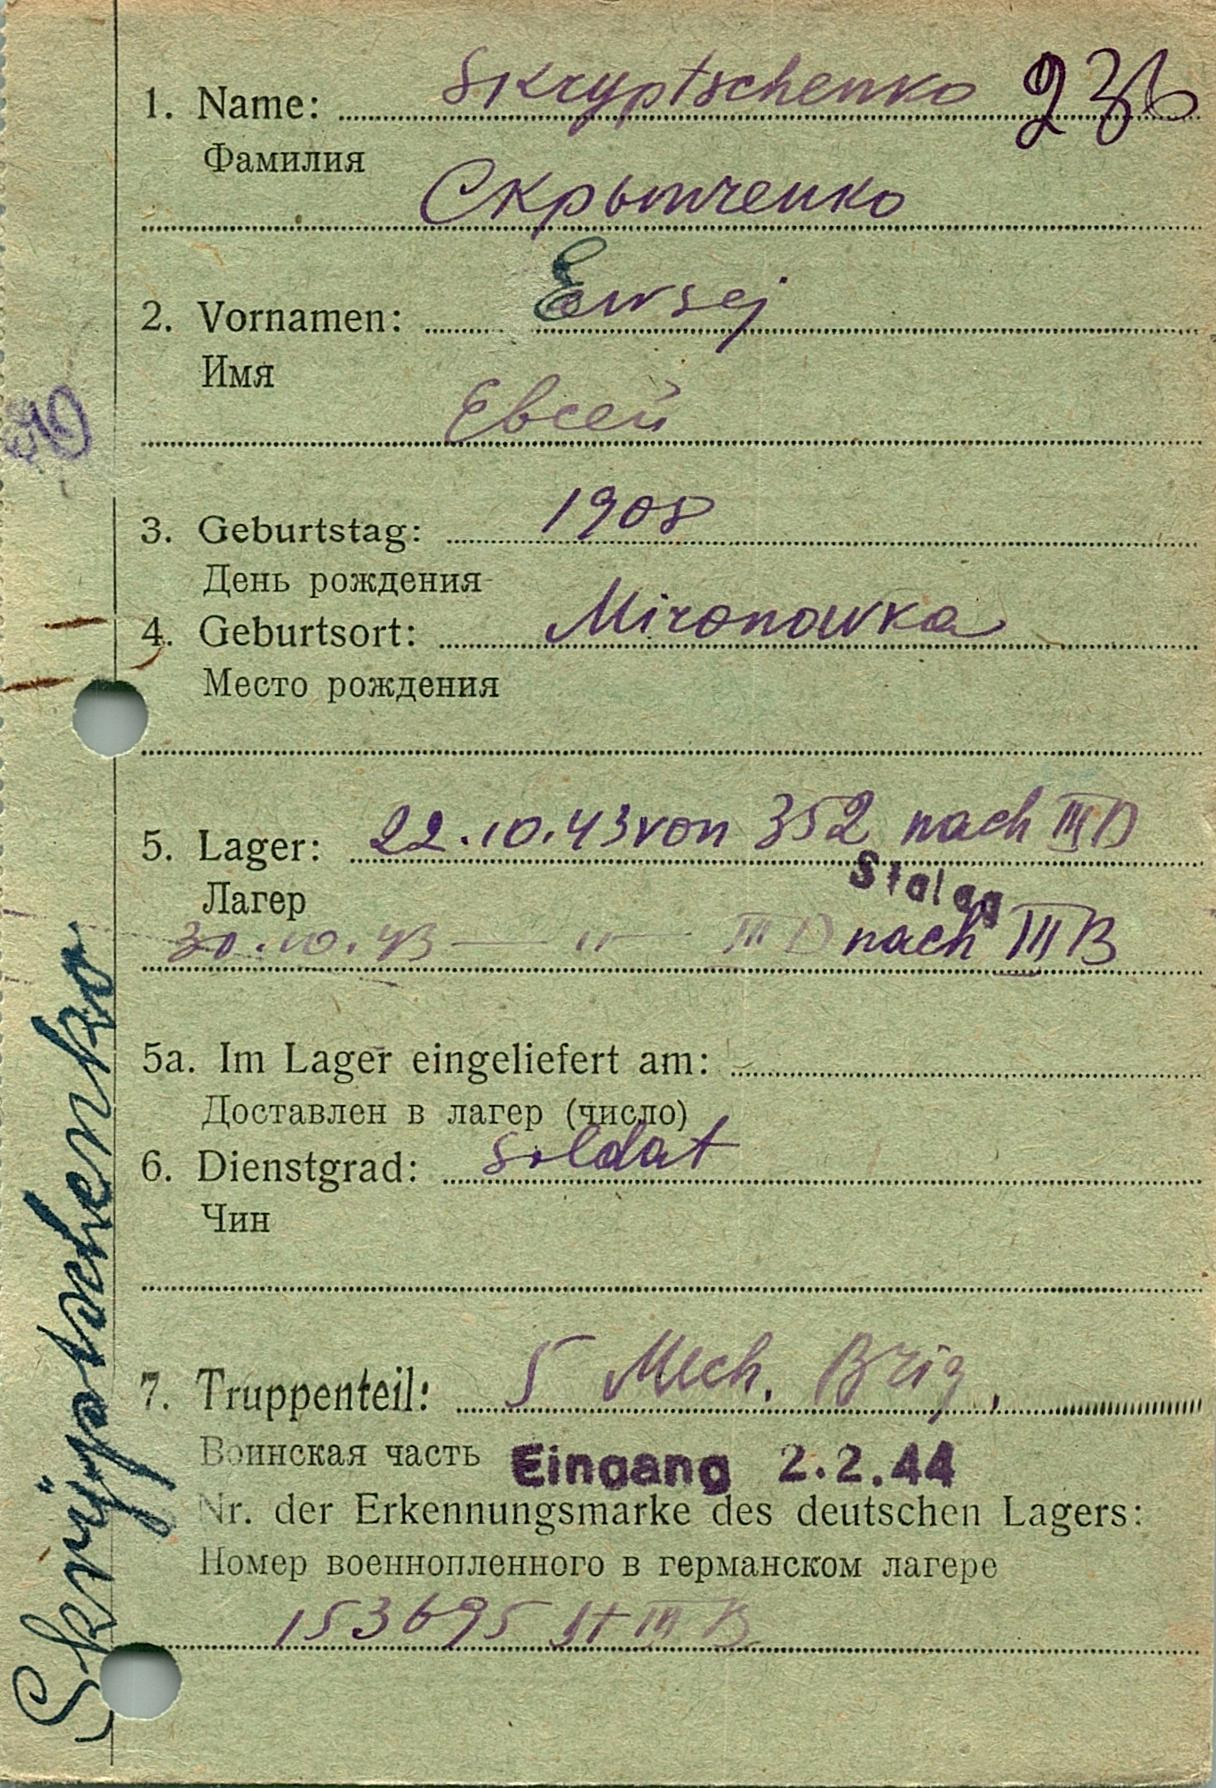 1. Name: Skryptschenko 236
Фамилия
Скрыпченко
2. Vornamen: Ewsej
Имя
Евсей
3. Geburtstag: 1908
День рождения
4. Geburtsort: Mironowka
Место рождения
5. Lager: 22.10.43 von 352 nach III D
Лагер
Stalag
30.10.43 — " — III D nach III B
5a. Im Lager eingeliefert am:
Доставлен в лагер (число)
6. Dienstgrad: Soldat
Чин
7. Truppenteil: 5 Mech. Brig.
Воинская часть
Eingang 2.2.44
Nr. der Erkennungsmarke des deutschen Lagers:
Номер военнопленного в германском лагере
153695 St III B
Skrÿptschenko